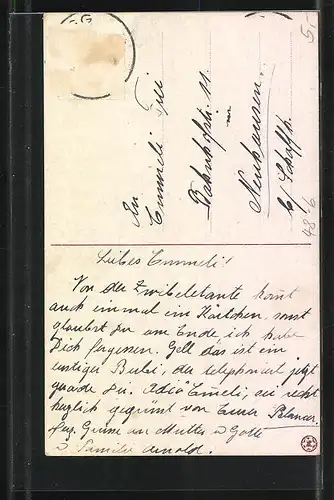 An
Emmeli
Bahnhofstr. 11.
in
Neuhausen.
b/ Schaffh.
5.-
48/6
Liebes Emmeli!
Von der Zwibeletante kommt
auch einmal ein Kärtchen, sonst
glaubst du am Ende ich habe
Dich vergessen. Gell das ist ein
lustiger Bubi, der telephoniert jetzt
gerade dir. Adiö Emeli, sei recht
herzlich gegrüsst von Eurer
Grüsse an Mutter u Gotte
u Familie Arnold.